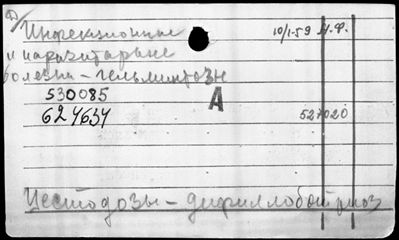 Инфекционные 10/I-59 Н.Ф.
и паразитарные
болезни - гельминтозы
530085
А
624634 527020
Цестодозы - дифиллоботриоз